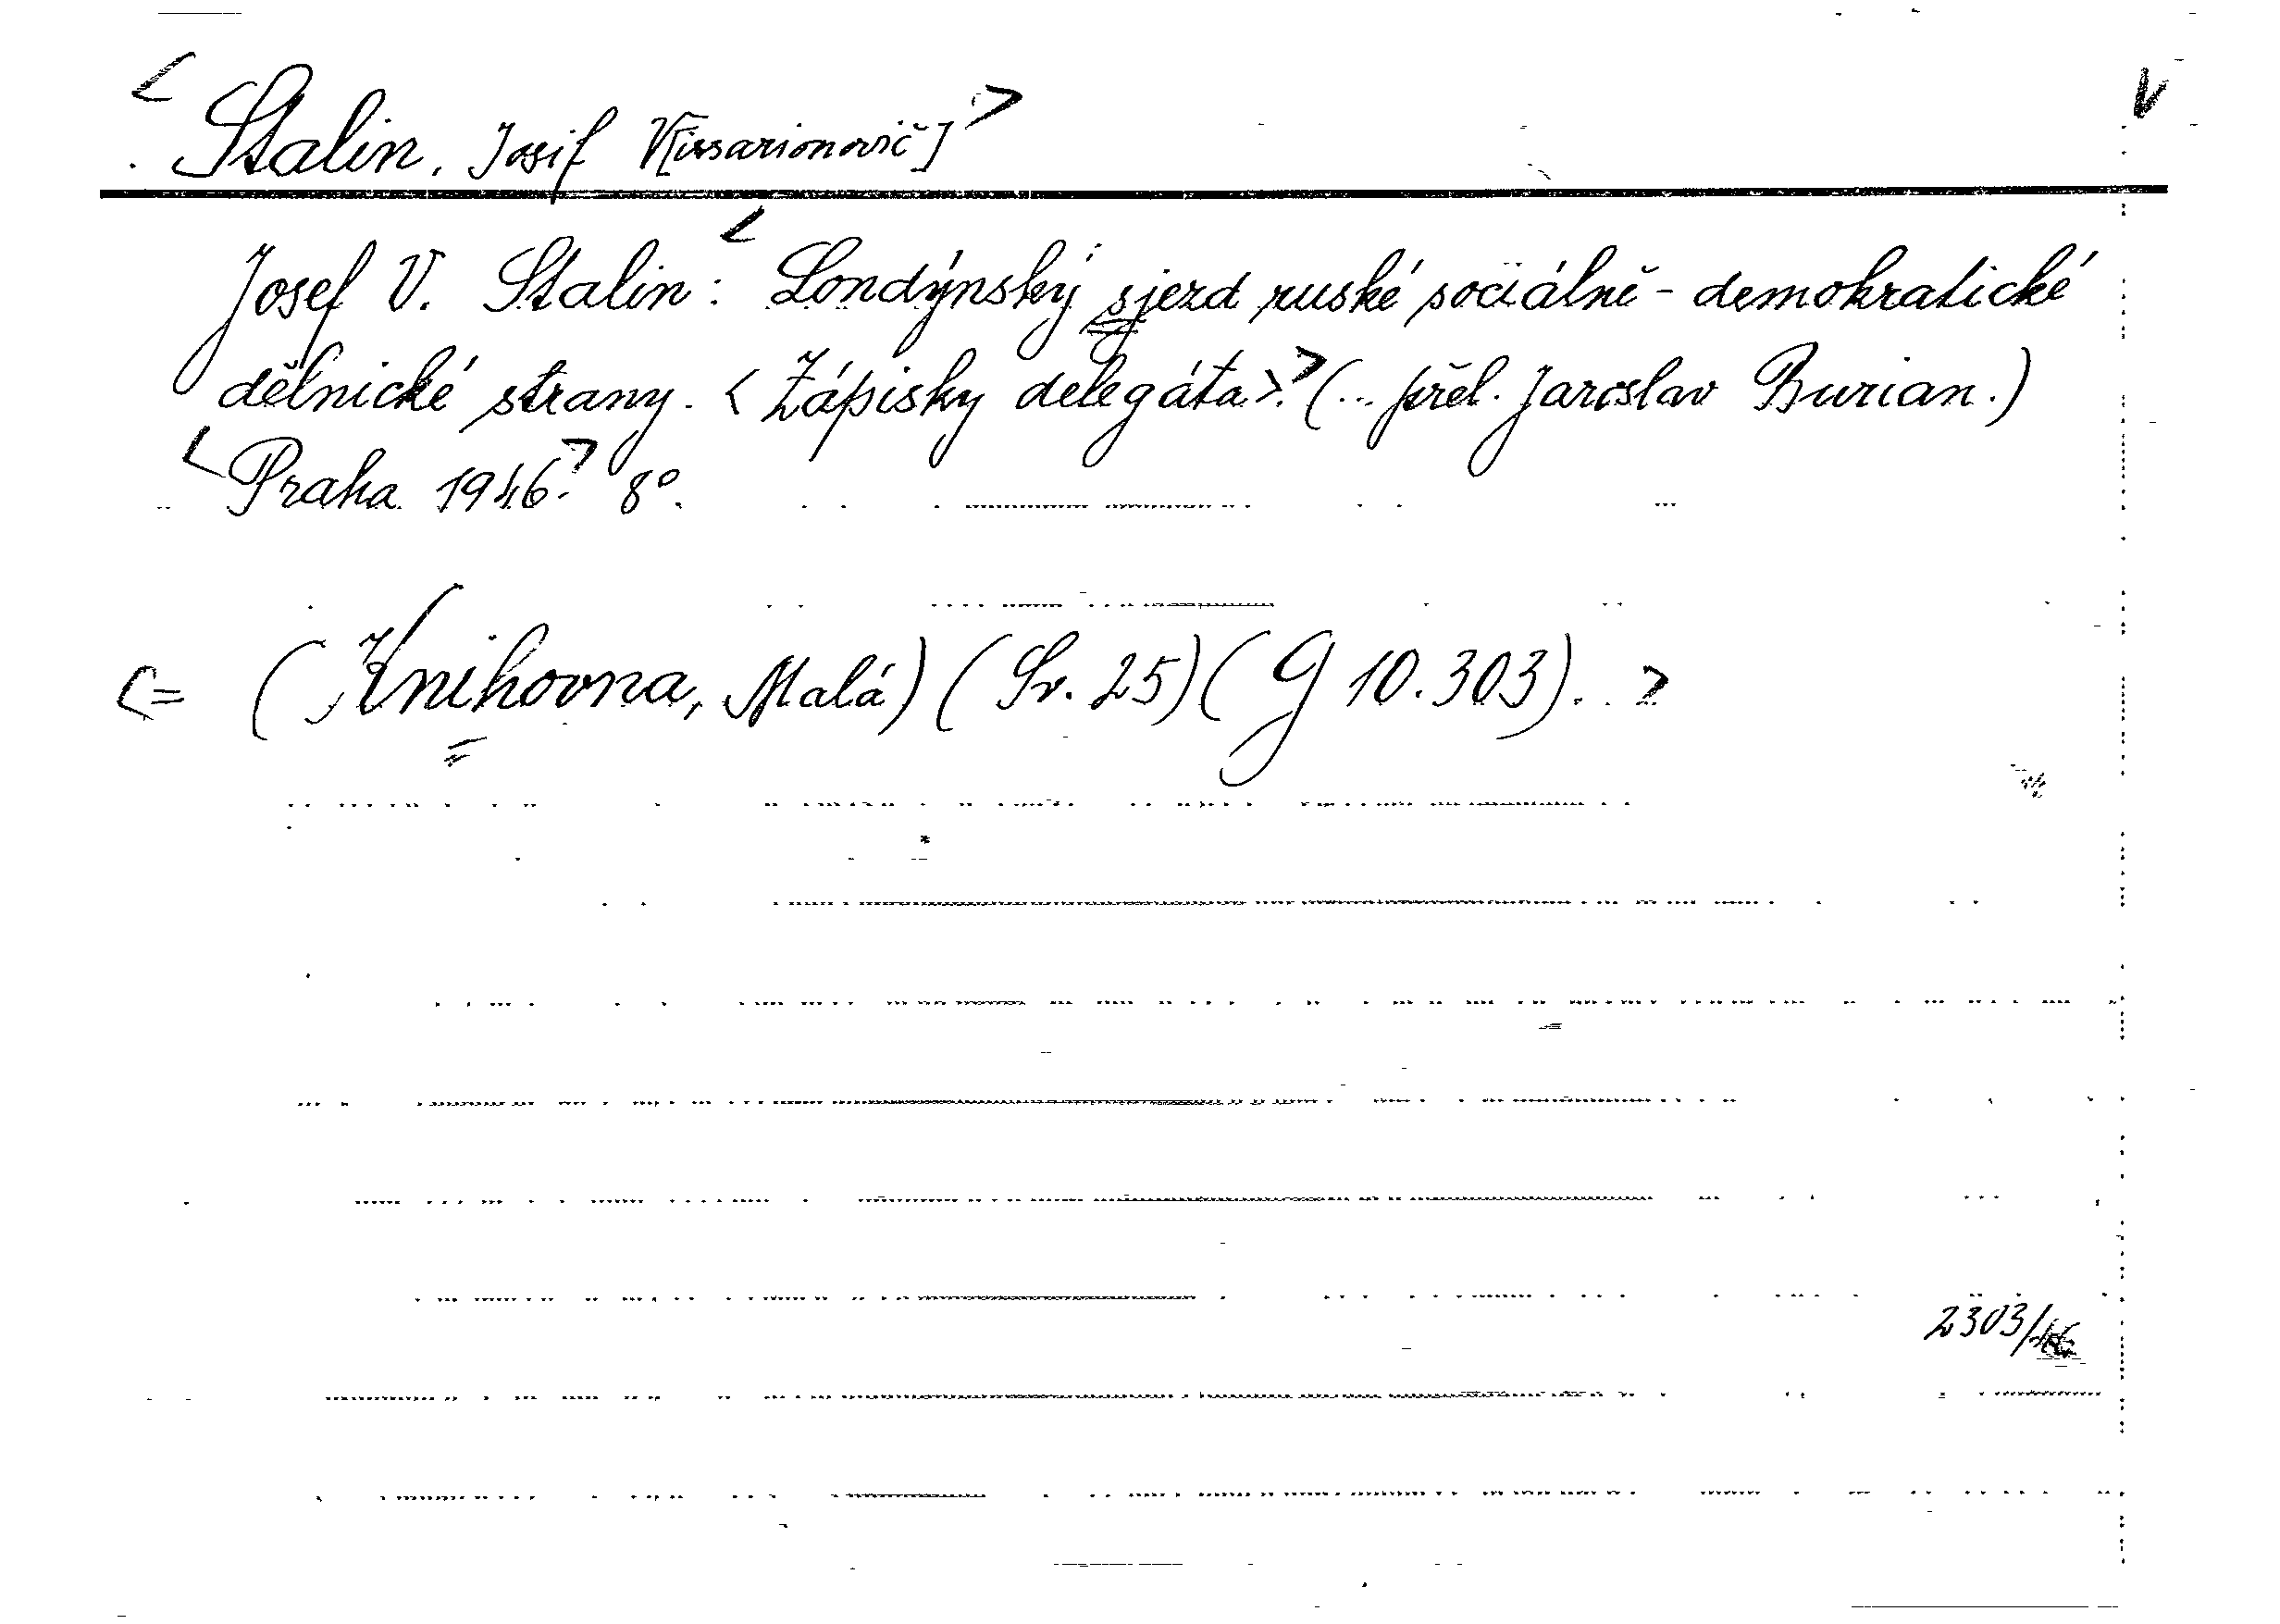 <Stalin, Josif V[issarionovič]> V
Josef V. Stalin: <Londýnský sjezd ruské sociálně-demokratické
dělnické strany. <Zápisky delegáta>.> (... přel. Jaroslav Burian.)
<Praha 1946.> 8°.
<= (Knihovna, Malá) (Sv. 25) (G 10.303). >
2303/